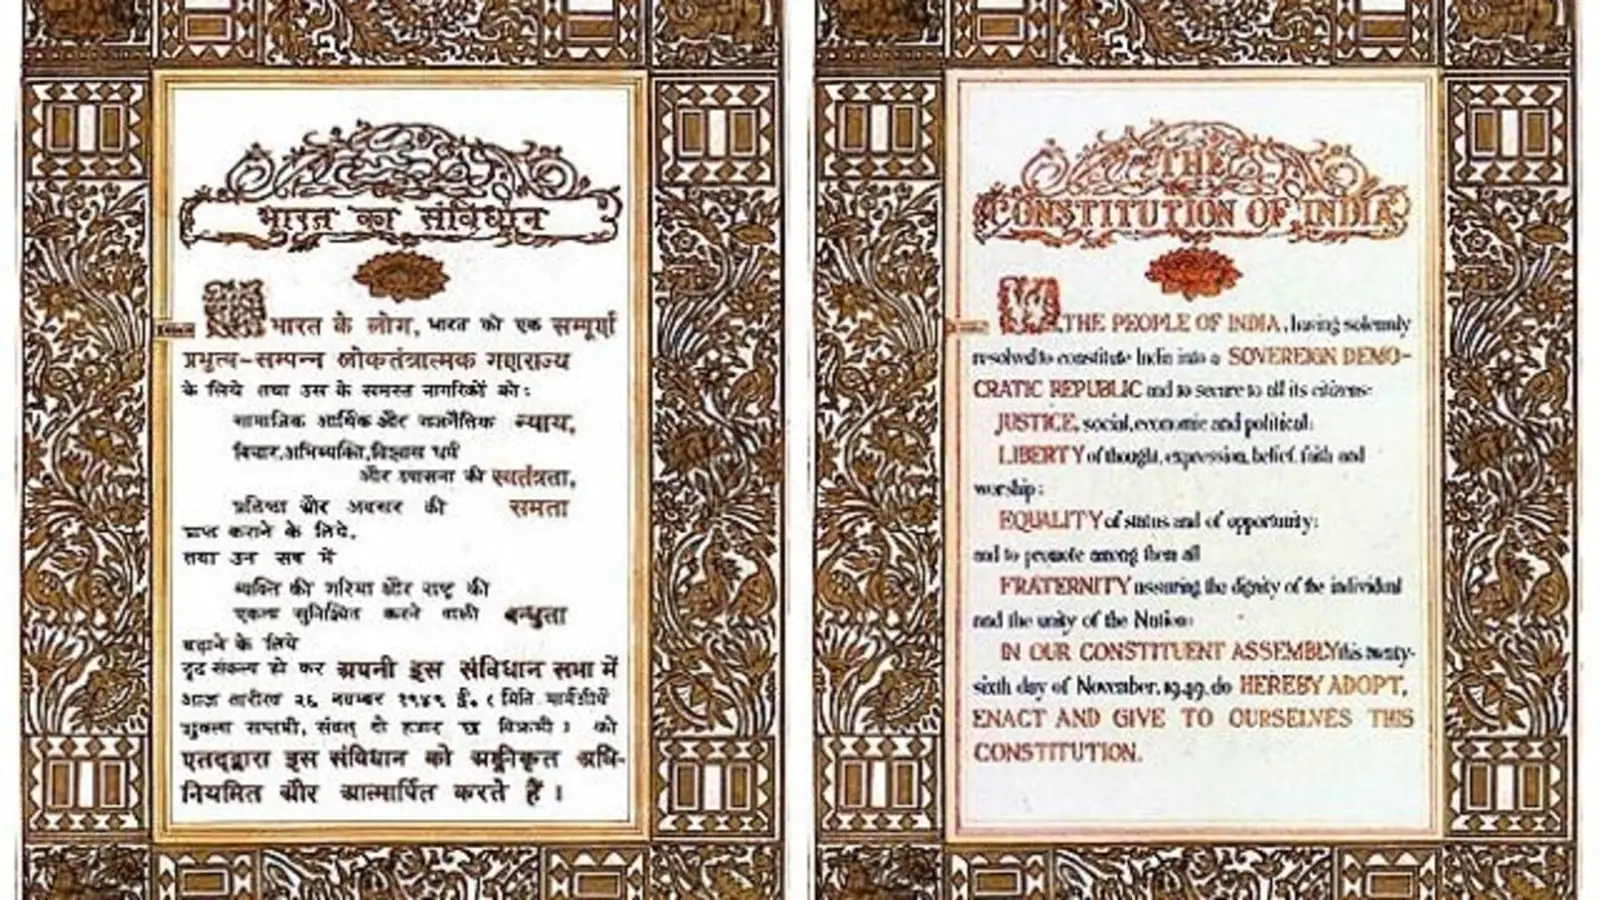 भारत का संविधान
हम भारत के लोग, भारत को एक सम्पूर्ण
प्रभुत्व-सम्पन्न लोकतंत्रात्मक गणराज्य
के लिये तथा उस के समस्त नागरिकों को:
सामाजिक आर्थिक और राजनैतिक न्याय,
विचार,अभिव्यक्ति,विश्वास धर्म
और उपासना की स्वतंत्रता,
प्रतिष्ठा और अवसर की समता
प्राप्त कराने के लिये,
तथा उन सब में
व्यक्ति की गरिमा और राष्ट्र की
एकता सुनिश्चित करने वाली बन्धुता
बढ़ाने के लिये
दृढ़ संकल्प हो कर अपनी इस संविधान सभा में
आज तारीख २६ नवम्बर १९४९ ई० ( मिति मार्गशीर्ष
शुक्ला सप्तमी, संवत् दो हजार छ विक्रमी ) को
एतद्द्वारा इस संविधान को अङ्गीकृत अधि-
नियमित और आत्मार्पित करते हैं ।
THE
CONSTITUTION OF INDIA
WE, THE PEOPLE OF INDIA, having solemnly
resolved to constitute India into a SOVEREIGN DEMO-
CRATIC REPUBLIC and to secure to all its citizens:
JUSTICE, social, economic and political;
LIBERTY of thought, expression, belief, faith and
worship;
EQUALITY of status and of opportunity;
and to promote among them all
FRATERNITY assuring the dignity of the individual
and the unity of the Nation;
IN OUR CONSTITUENT ASSEMBLY this twenty-
sixth day of November, 1949, do HEREBY ADOPT,
ENACT AND GIVE TO OURSELVES THIS
CONSTITUTION.